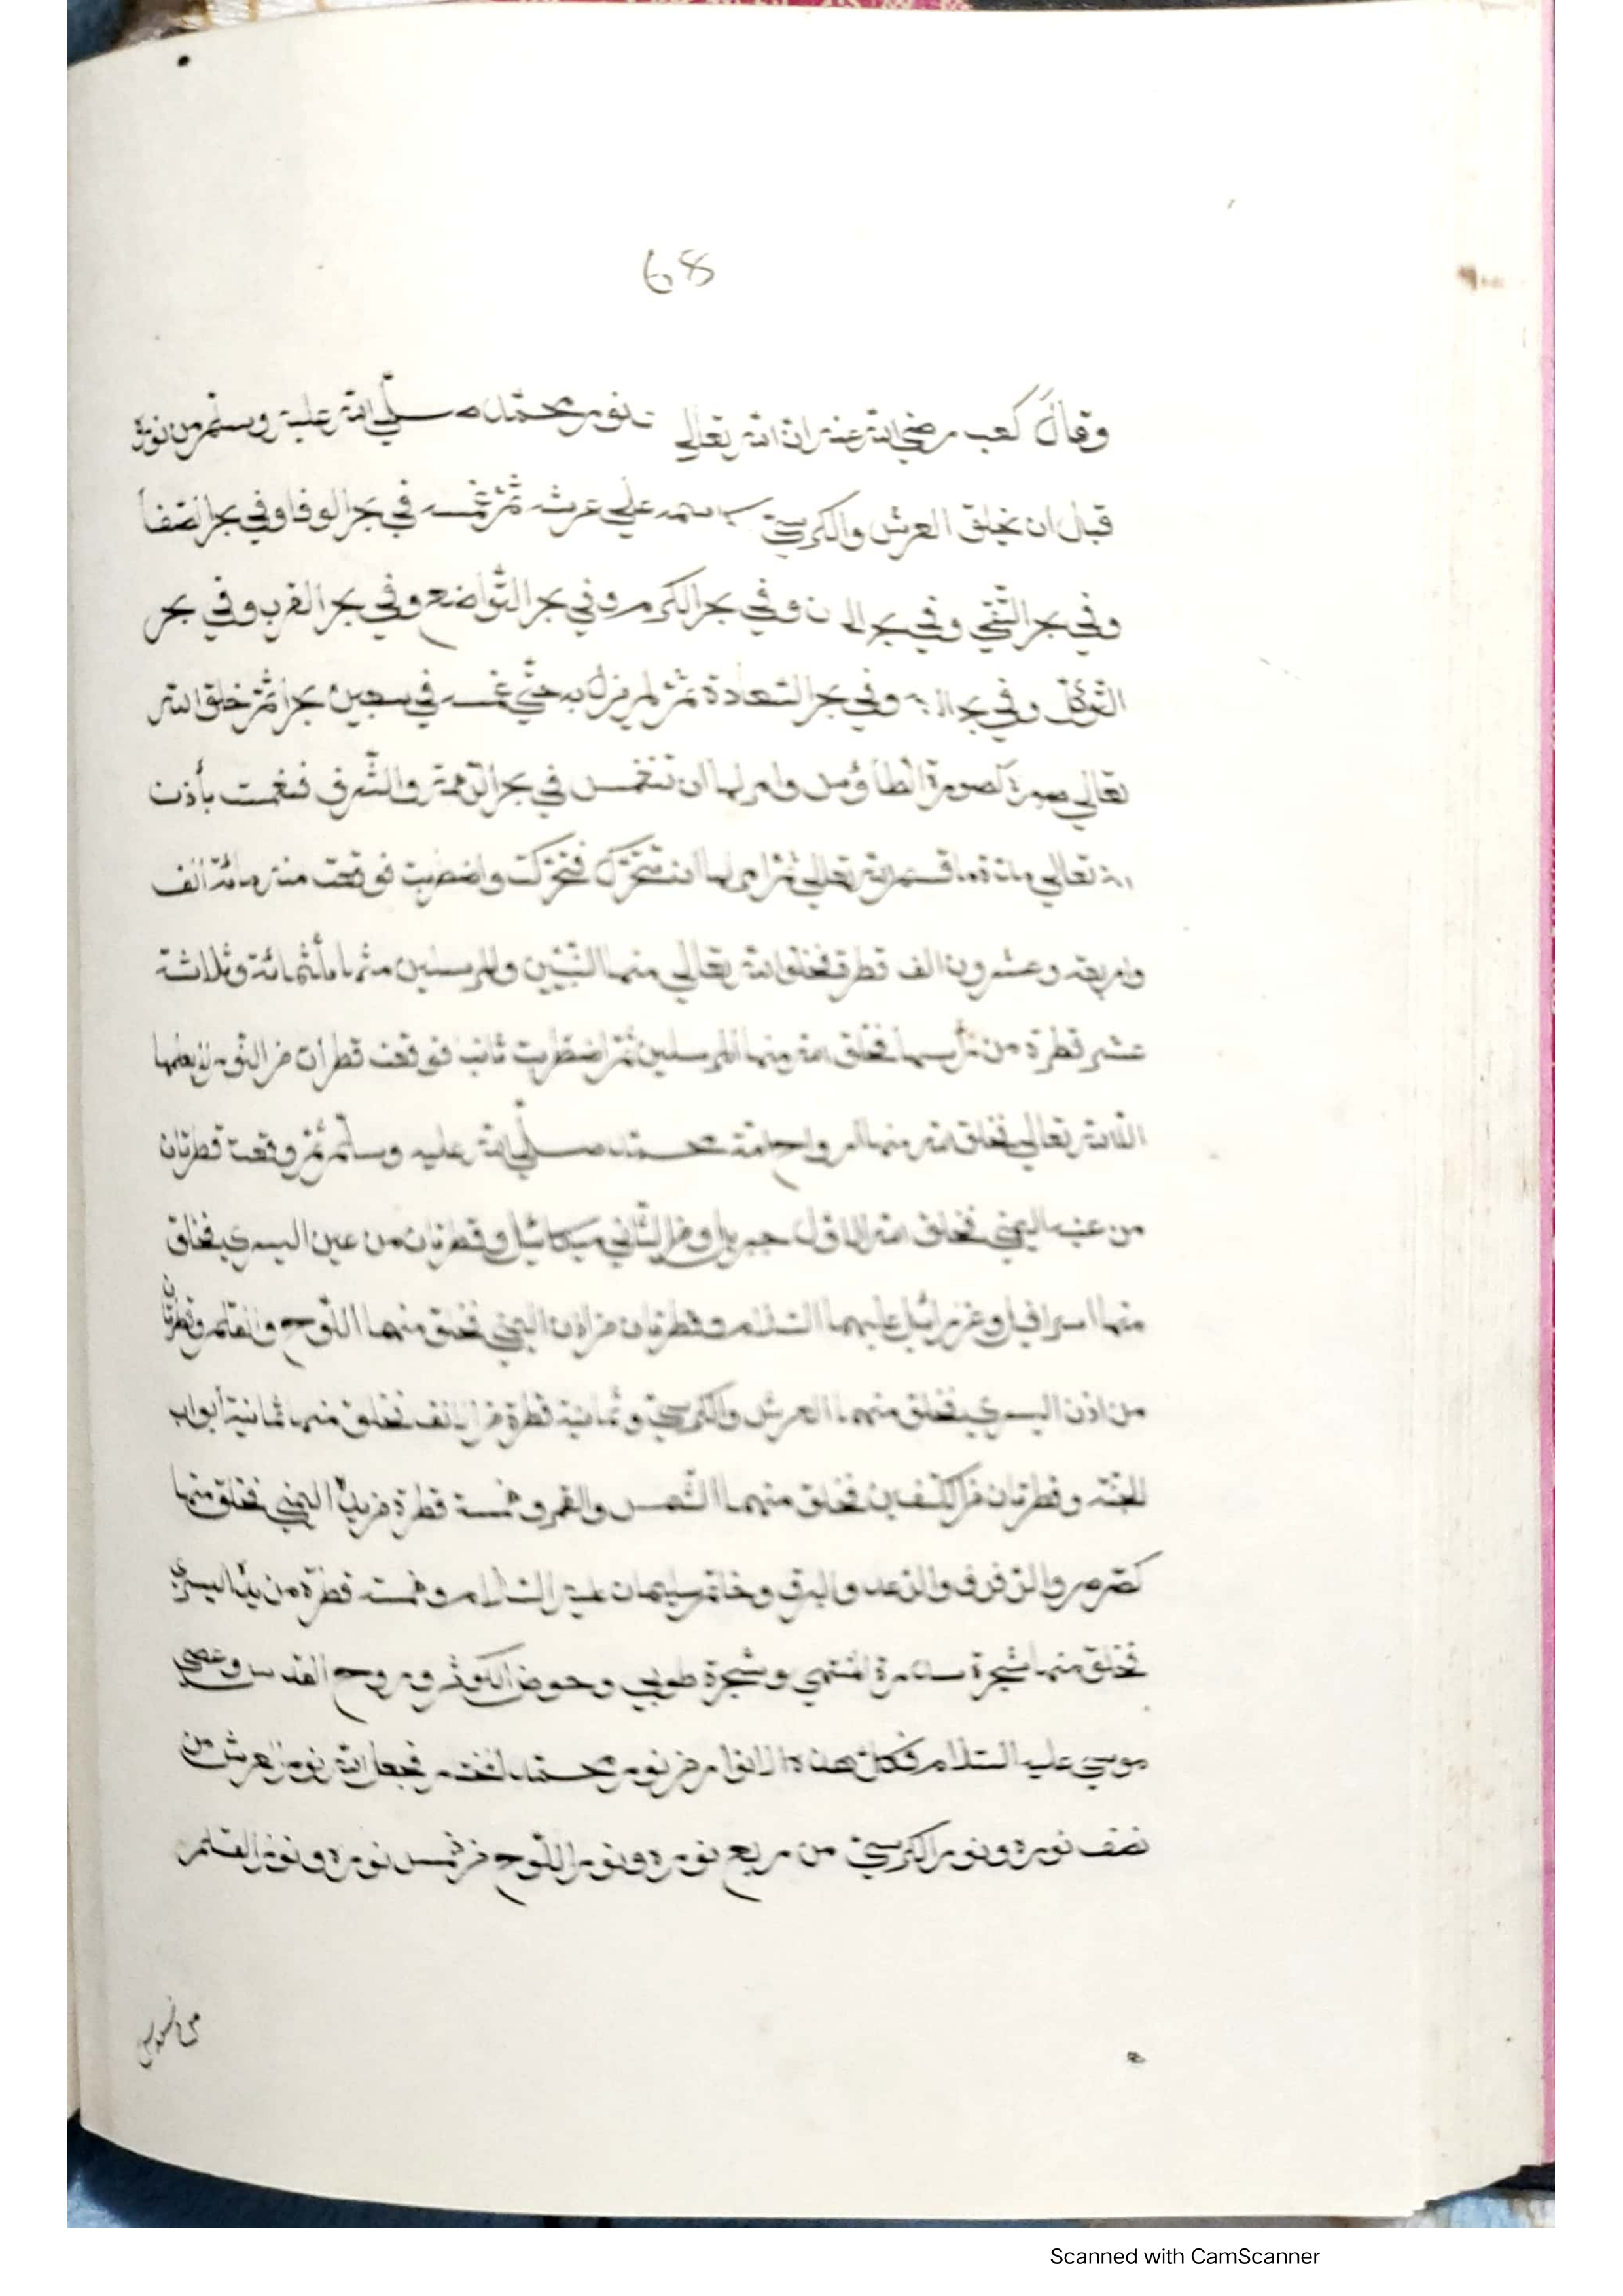 68
وقال كعب رضي الله عنه ان الله تعالى نور محمد صلى الله عليه وسلم من نوره
قبل ان يخلق العرش والكرسي على عرشه ثم غمسه في بحر الوفا وفي بحر الصفا
وفي بحر التقي وفي بحر وفي بحر الكرم وفي بحر التواضع وفي بحر القرب وفي بحر
التوكل وفي وفي بحر السعادة ثم لم يزل به حتي غمسه في سبعين بحرا ثم خلق الله
تعالي صورة كصورة الطاؤس وامرها ان تنغمس في بحر الرحمة والشرف فنغمست بأذن
الله تعالي قسم الله تعالي ثم امرها ان تتحرك فتحركت واضطربت فوقعت منه مائة الف
واربعة وعشرون الف قطرة فخلق الله تعالي منها النبيين والمرسلين منها ثلثمائة وثلاثة
عشر قطرة من رأسها فخلق الله منها المرسلين ثم اضطربت ثانيا فوقعت قطرات من النور لا يعلمها
الا الله تعالي فخلق الله منها ارواح امة محمد صلى الله عليه وسلم ثم وقعت قطرتان
من عينه اليمني فخلق الله الاول جبريل ومن الثاني ميكائيل وقطرتان من عين اليسري فخلق
منهما اسرافيل وعزرائيل عليهما السلام وقطرتان من اذن اليمني فخلق منهما اللوح والقلم وقطرتان
من اذن اليسري فخلق منهما العرش والكرسي وثمانية قطرة من الانف فخلق منها ثمانية ابواب
الجنة وقطرتان من الكتفين فخلق منهما الشمس والقمر وخمسة قطرة من يد اليمني فخلق منها
والرفرف والرعد والبرق وخاتم سليمان عليه السلام وخمسة قطرة من يد اليسري
فخلق منها شجرة سدرة المنتهي وشجرة طوبي وحوض الكوثر وروح القدس وعصي
موسي عليه السلام فكل هذه الانوار من نور محمد فجعل الله نور العرش من
نصف نوره ونور الكرسي من ربع نوره ونور اللوح من خمس نوره ونور القلم